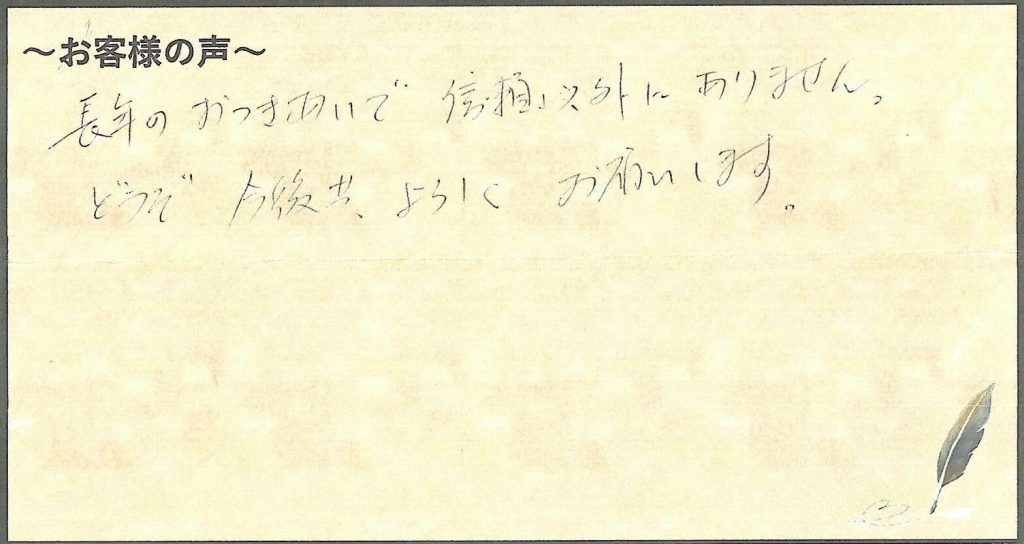 ～お客様の声～
長年のおつきあいで 信頼以外にありません。
どうぞ 今後共、よろしく お願いします。